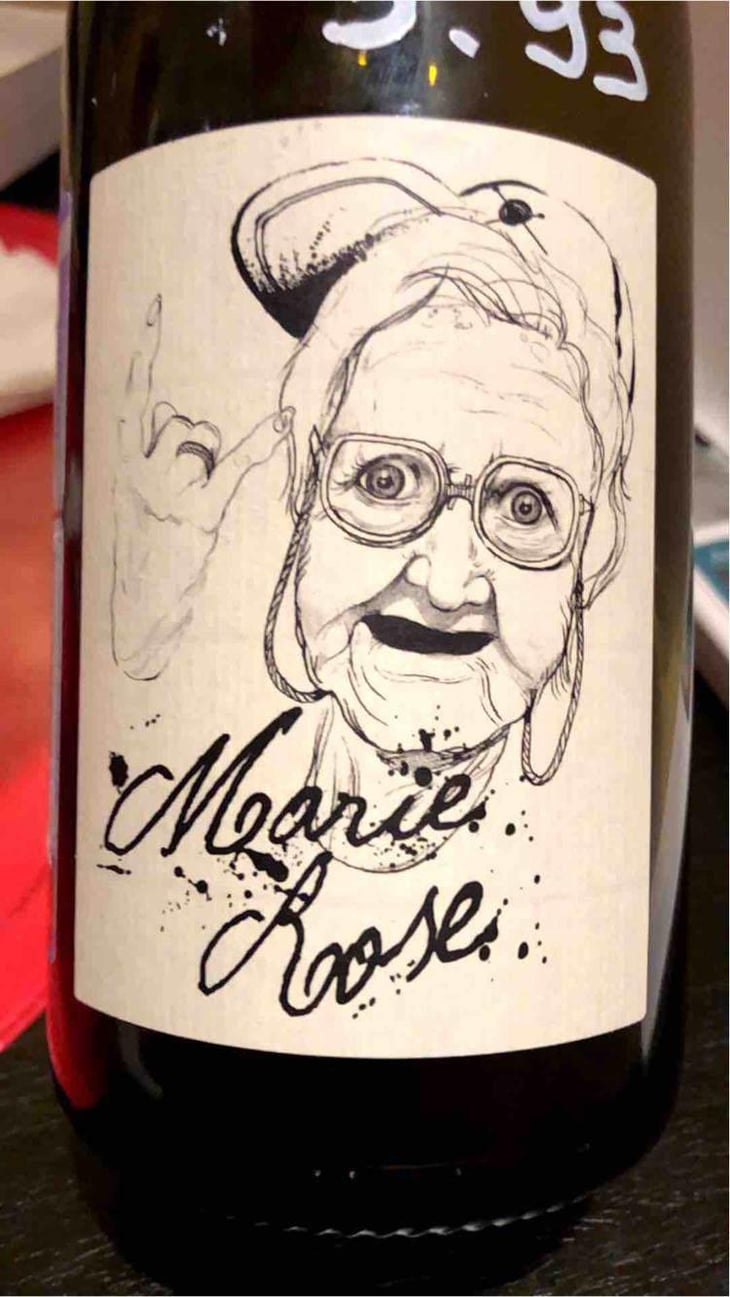 5.93
Marie
Rose